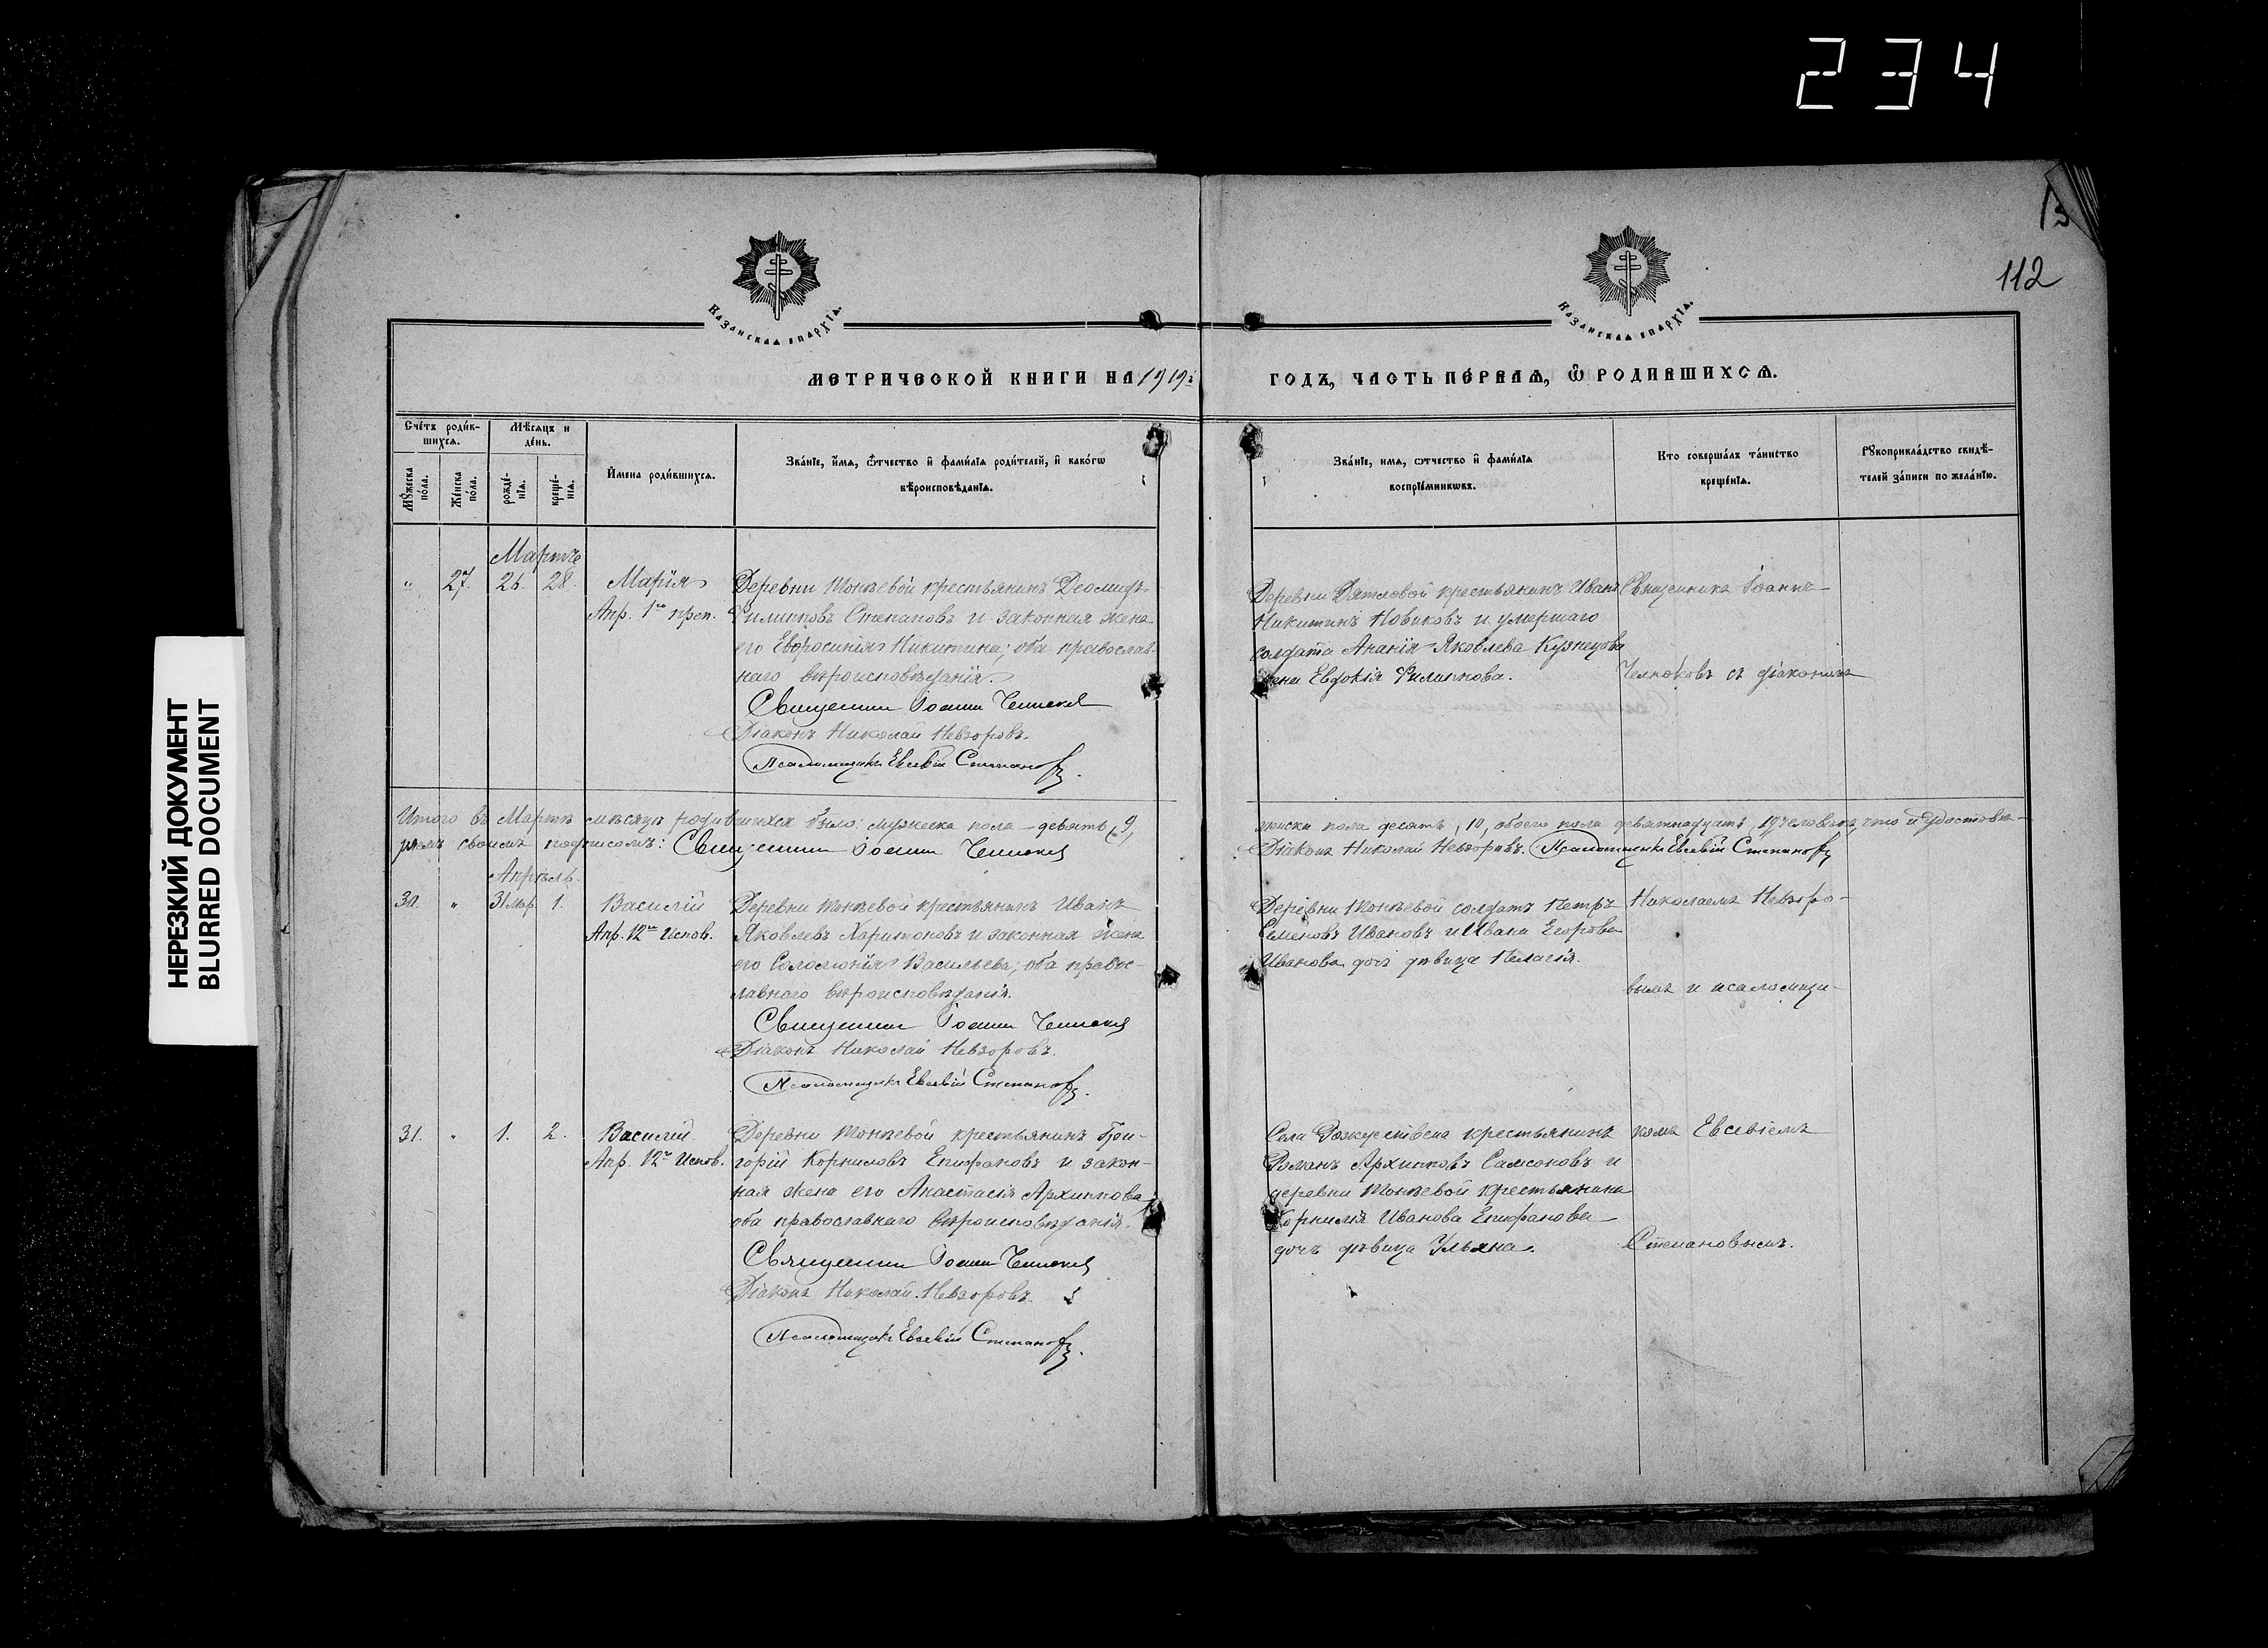 234
НЕРЕЗКИЙ ДОКУМЕНТ
BLURRED DOCUMENT
13
112
КАЗАНСКАѦ ЕПАРХІѦ.
КАЗАНСКАѦ ЕПАРХІѦ.
МЕТРИЧЕСКОЙ КНИГИ НА 1919й ГОДЪ, ЧАСТЬ ПЕ́РВАѦ, Ѽ РОДИВШИХСѦ.
Сче́тъ роди́вшихсѧ.
Мѣ́сѧцъ и де́нь.
Мꙋ́жеска по́ла.
Же́нска по́ла.
рожде́нїѧ.
креще́нїѧ.
И҆мена роди́вшихсѧ.
Зва́нїе, и҆́мѧ, ѻ҆́тчество и҆ фами́лїѧ роди́телей, и҆ како́гѡ
вѣ́роисповѣ́данїѧ.
Зва́нїе, имѧ, ѻтчество и҆ фами́лїѧ
воспрїе́мникѡвъ.
Кто соверша́лъ та́инство
креще́нїѧ.
Рꙋкоприкла́дство свидѣ́-
телей за́писи по жела́нїю.
Мартъ
" 27. 26. 28. Марія
Апр. 1го преп.
Деревни крестьянинъ Деомидъ
Филипповъ Степановъ и законная жена
его Евфросинія Никитина; оба православ-
наго вѣроисповѣданія.
Священникъ Іоаннъ
Діаконъ Николай Невзоровъ.
Псаломщикъ Евсевій Степановъ.
Деревни Дятловой крестьянинъ Иванъ
Никитинъ Новиковъ и умершаго
солдата Ананія Яковлева Кузнецова
жена Евдокія Филиппова.
Священникъ Іоаннъ
съ діакономъ
Итого въ Мартѣ мѣсяцѣ родившихся было: мужеска пола девять, 9, женска пола десять, 10, обоего пола девятнадцать, 19 человѣкъ, что и удостовѣ-
ряемъ своимъ подписомъ: Священникъ Іоаннъ Діаконъ Николай Невзоровъ. Псаломщикъ Евсевій Степановъ
Апрѣль.
30. " 31 мар. 1. Василій
Апр. 12го Испов.
Деревни крестьянинъ Иванъ
Яковлевъ Харитоновъ и законная жена
его Соломонія Васильева; оба правос-
лавнаго вѣроисповѣданія.
Священникъ Іоаннъ
Діаконъ Николай Невзоровъ.
Псаломщикъ Евсевій Степановъ.
Деревни солдатъ Петръ
Семёновъ Ивановъ и Ивана Егорова
Иванова дочь дѣвица Пелагія.
Николаемъ Невзоро-
вымъ и псаломщи-
31. " 1. 2. Василій
Апр. 12го Испов.
Деревни крестьянинъ Гри-
горій Корниловъ Епифановъ и закон-
ная жена его Анастасія Архиппова
оба православнаго вѣроисповѣданія.
Священникъ Іоаннъ
Діаконъ Николай Невзоровъ.
Псаломщикъ Евсевій Степановъ.
Села Рождествена крестьянинъ
Романъ Архипповъ Самсоновъ и
деревни крестьянина
Корнилія Иванова Епифанова
дочь дѣвица Ульяна.
комъ Евсевіемъ
Степановымъ.